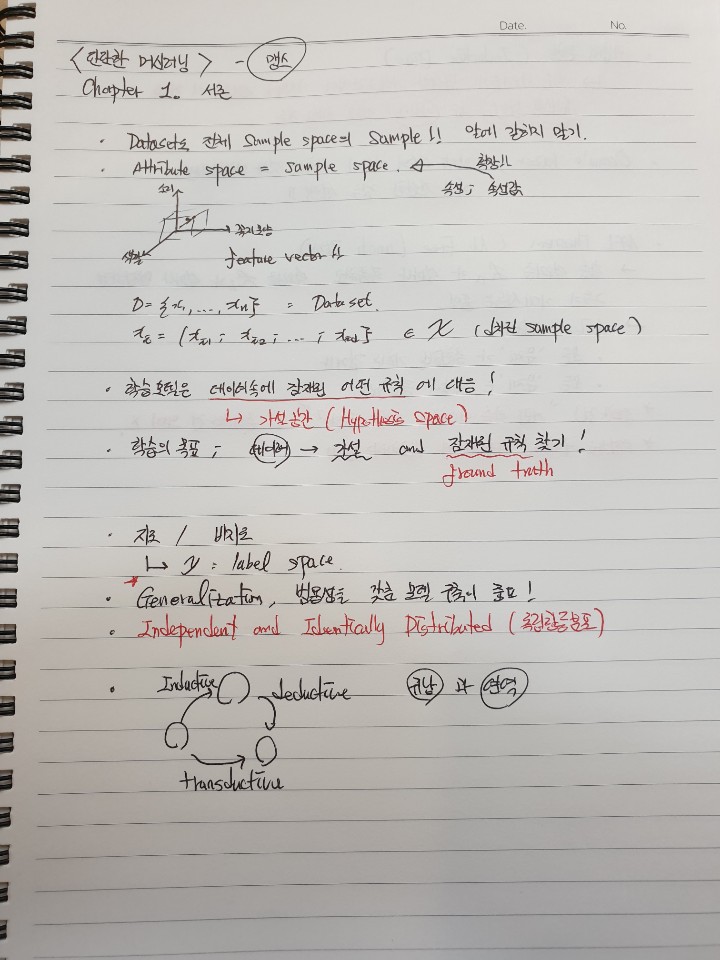 Date. No.
<단단한 머신러닝> - 맵스
Chapter 1. 서론
· Dataset는 전체 Sample space의 Sample!! 앞에 갇히지 말기.
· Attribute space = sample space. 확장!!
속성; 속성값
소리
꼭지모양
색깔
feature vector!!
D= {x1, ..., xn} = Dataset.
xi = (xi1; xi2; ...; xid} ∈ X (d차원 sample space)
· 학습모델은 데이터속에 잠재된 어떤 규칙에 대응!
↳ 가설공간 (Hypothesis space)
· 학습의 목표; 데이터 → 가설 and 잠재된 규칙 찾기!
ground truth
· 지도 / 비지도
↳ y = label space.
* · Generalization, 범용성을 갖춘 모델 구축이 중요!
· Independent and Identically Distributed (독립항등분포)
· Inductive deductive 귀납 과 연역
transductive